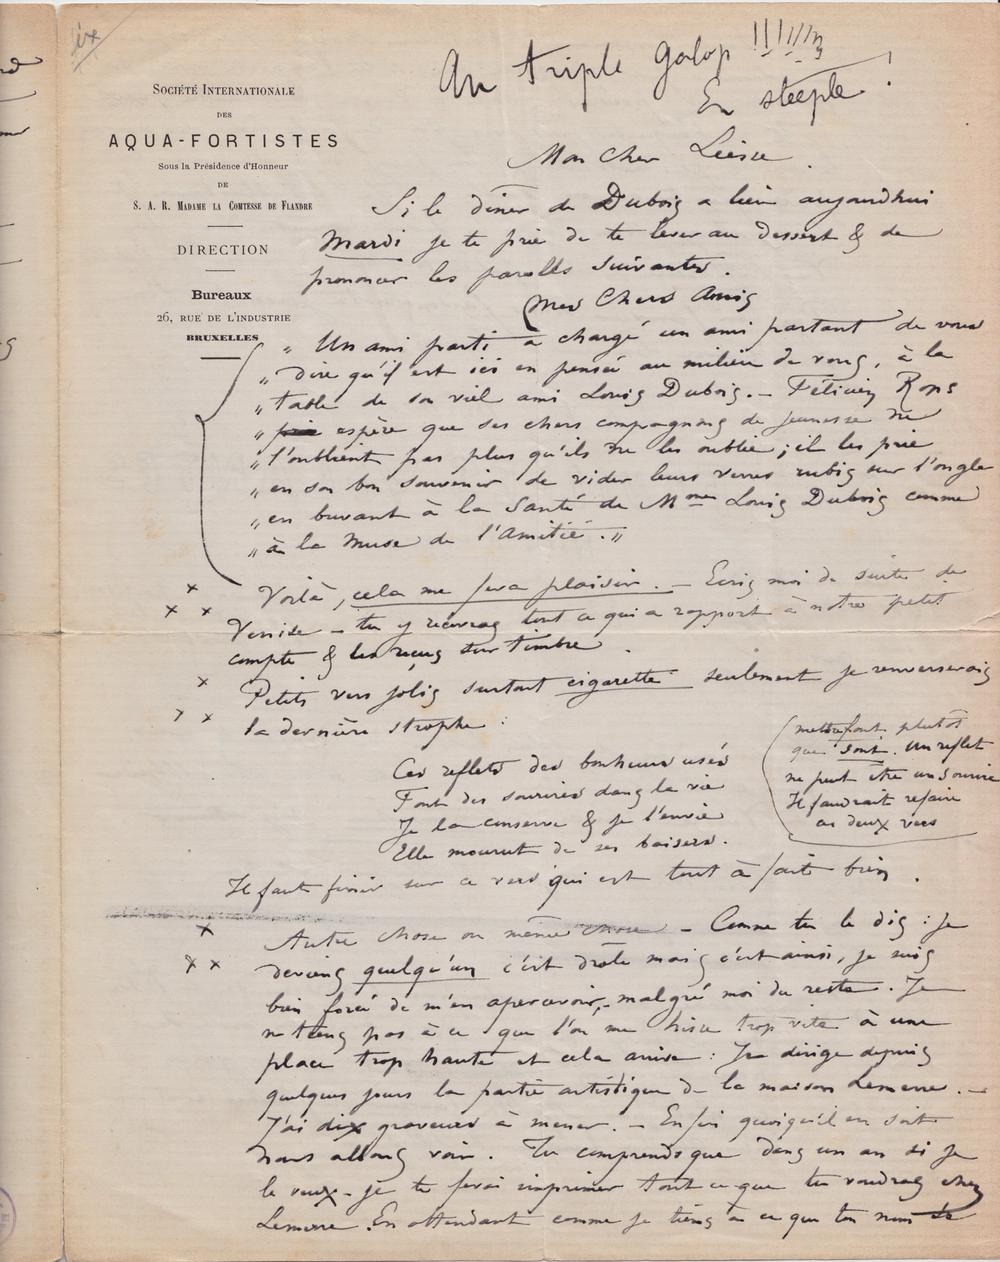 Au triple galop !!!!!!!
En steeple !
SOCIÉTÉ INTERNATIONALE
DES
AQUA-FORTISTES
Sous la Présidence d'Honneur
DE
S. A. R. MADAME LA COMTESSE DE FLANDRE
DIRECTION
Bureaux
26, RUE DE L'INDUSTRIE
BRUXELLES
Mon Cher Liesse.
Si le dîner de Dubois a lieu aujourdhui
Mardi je te prie de te lever au dessert & de
prononcer les paroles suivantes.
Mes Chers Amis
„ Un ami parti a chargé un ami partant de vous
„ dire qu'il est ici en pensée au milieu de vous, à la
„ table de son vieil ami Louis Dubois. – Félicien Rops
„ espère que ses chers compagnons de jeunesse ne
„ l'oublient pas plus qu'ils ne les oublie ; il les prie
„ en son bon souvenir de vider leurs verres rubis sur l'ongle
„ en buvant à la Santé de Mme Louis Dubois comme
„ à la Muse de l'Amitié. „
Voilà, cela me fera plaisir. – Ecris moi de suite de
Venise – tu y recevras tout ce qui a rapport à notre petit
compte & les reçus sur timbre.
Petits vers jolis surtout cigarette seulement je renverserais
la dernière strophe :
Ces reflets des bonheurs usés
Font des sourires dans la vie
Je la conserve & je l'envie
Elle mourut de ses baisers.
(mettre font plutôt
que sont. Un reflet
ne peut être un sourire
Il faudrait refaire
ces deux vers
Il faut finir sur ce vers qui est tout à fait bien.
Autre chose ou même chose – Comme tu le dis : je
deviens quelqu'un c'est drôle mais c'est ainsi, je suis
bien forcé de m'en apercevoir, malgré moi du reste. Je
ne tiens pas à ce que l'on me hisse trop vite à une
place trop haute et cela arrive : Je dirige depuis
quelques jours la partie artistique de la maison Lemerre. –
J'ai dix graveurs à mener. – Enfin quoiqu'il en soit
nous allons voir. Tu comprends que dans un an si je
le veux – je te ferai imprimer tout ce que tu voudras chez
Lemerre. En attendant comme je tiens à ce que ton nom